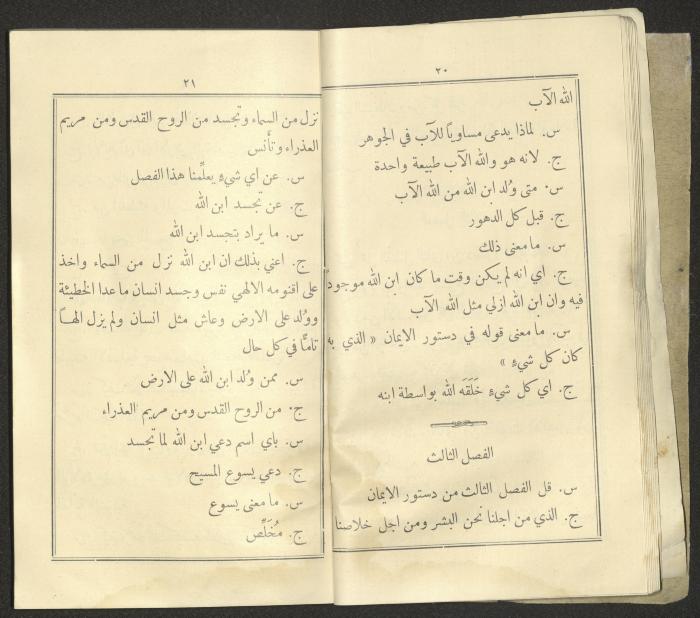 ٢٠
الله الآب
س. لماذا يدعى مساوياً للآب في الجوهر
ج. لانه هو والله الآب طبيعة واحدة
س. متى وُلد ابن الله من الله الآب
ج. قبل كل الدهور
س. ما معنى ذلك
ج. اي انه لم يكن وقت ما كان ابن الله موجوداً
فيه وان ابن الله ازلي مثل الله الآب
س. ما معنى قوله في دستور الايمان « الذي به
كان كل شيءٍ »
ج. اي كل شيءٍ خَلَقَه الله بواسطة ابنه
الفصل الثالث
س. قل الفصل الثالث من دستور الايمان
ج. الذي من اجلنا نحن البشر ومن اجل خلاصنا
٢١
نزل من السماء وتجسد من الروح القدس ومن مريم
العذراء وتأنس
س. عن اي شيءٍ يعلِّمنا هذا الفصل
ج. عن تجسد ابن الله
س. ما يراد بتجسد ابن الله
ج. اعني بذلك ان ابن الله نزل من السماء واخذ
على اقنومه الالهي نفس وجسد انسان ما عدا الخطيئة
ووُلد على الارض وعاش مثل انسان ولم يزل الهـاً
تامًّا في كل حال
س. ممن وُلد ابن الله على الارض
ج. من الروح القدس ومن مريم العذراء
س. باي اسم دعي ابن الله لما تجسد
ج. دعي يسوع المسيح
س. ما معنى يسوع
ج. مُخَلِّص